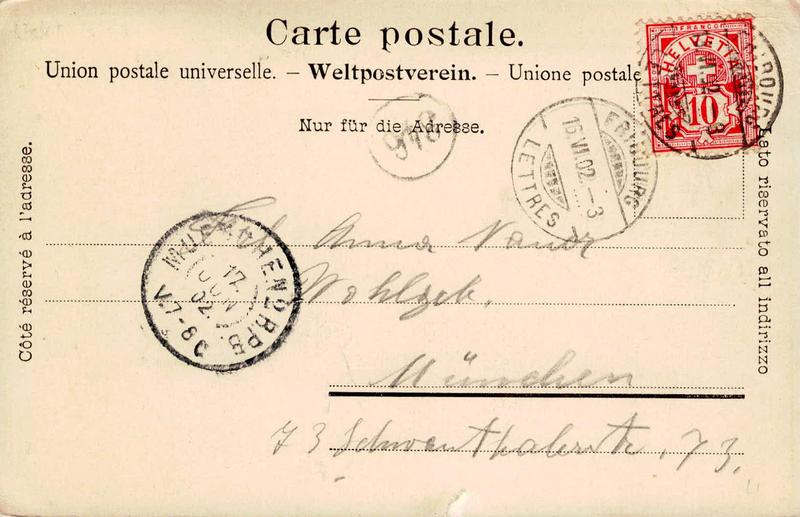 Carte postale.
Union postale universelle. – Weltpostverein. – Unione postale
Nur für die Adresse.
Côté réservé à l'adresse.
Lato riservato all indirizzo
FRANCO
HELVETIA
10
FRIBOURG
16.VI.02.–3
LETTRES
948
MUENCHEN 2 B.P.B.
17.
JUN
02.
V.7-8
Anna
Wohlgeb.
München
73 Schwanthalerstr. 73.